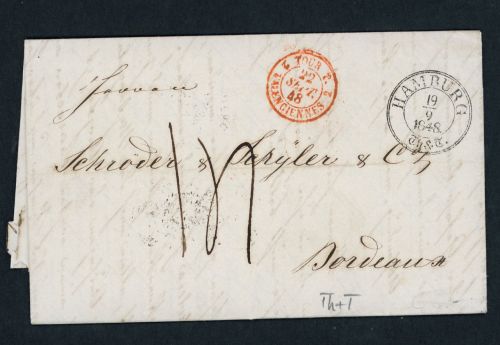 2 TOUR 2
22
SEPT.
48
VALENCIENNES 2
HAMBURG
19
9
1848
Herren
Schröder & Schÿler & Co
Bordeaux
Th+T